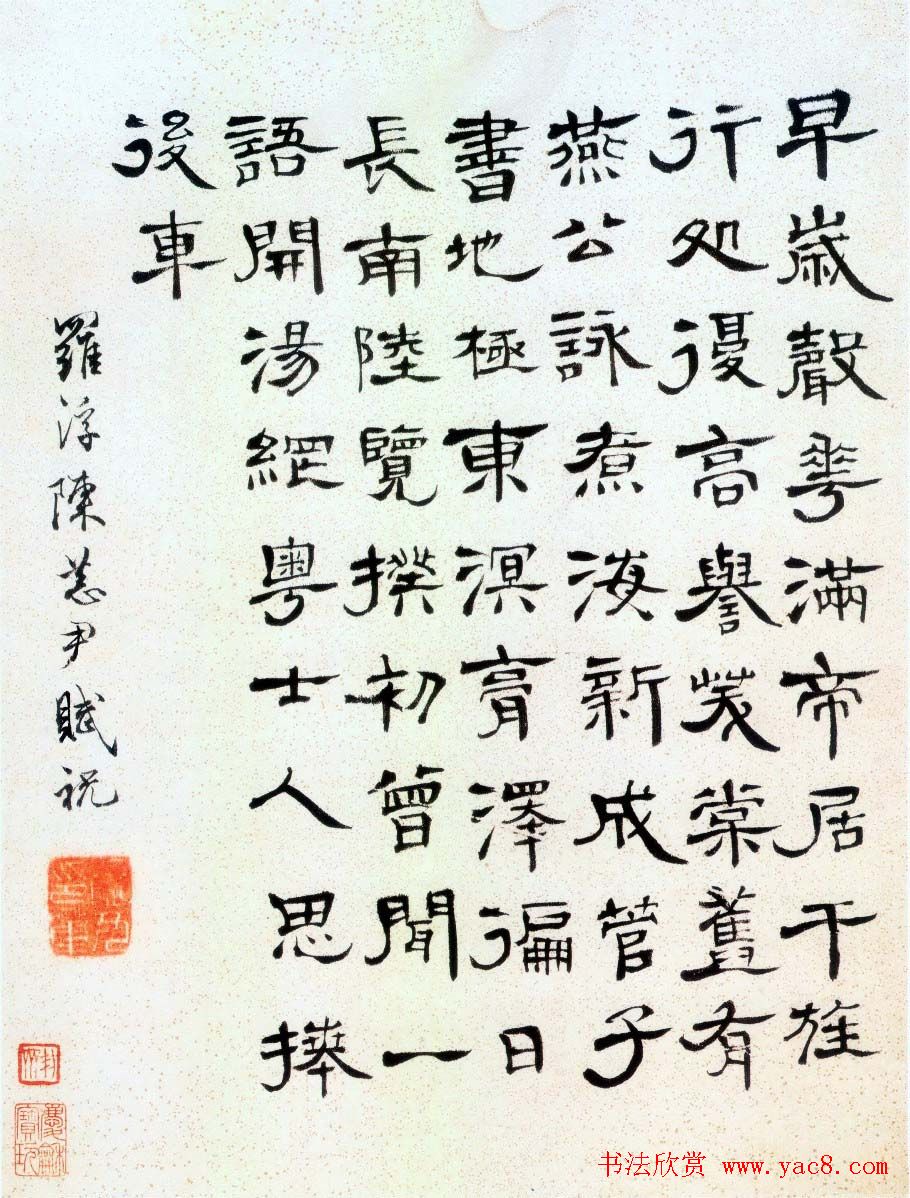 早歲聲華滿帝居干旄
行処復高譽茇棠舊有
燕公詠煮海新成管子
書地極東溟膏澤徧日
長南陸覽揆初曾聞一
語開湯網粵士人思捧
後車
羅浮陳恭尹賦祝
书法欣赏 www.yac8.com